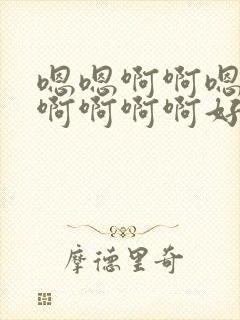 嗯嗯啊啊嗯
啊啊啊啊好
摩德里奇